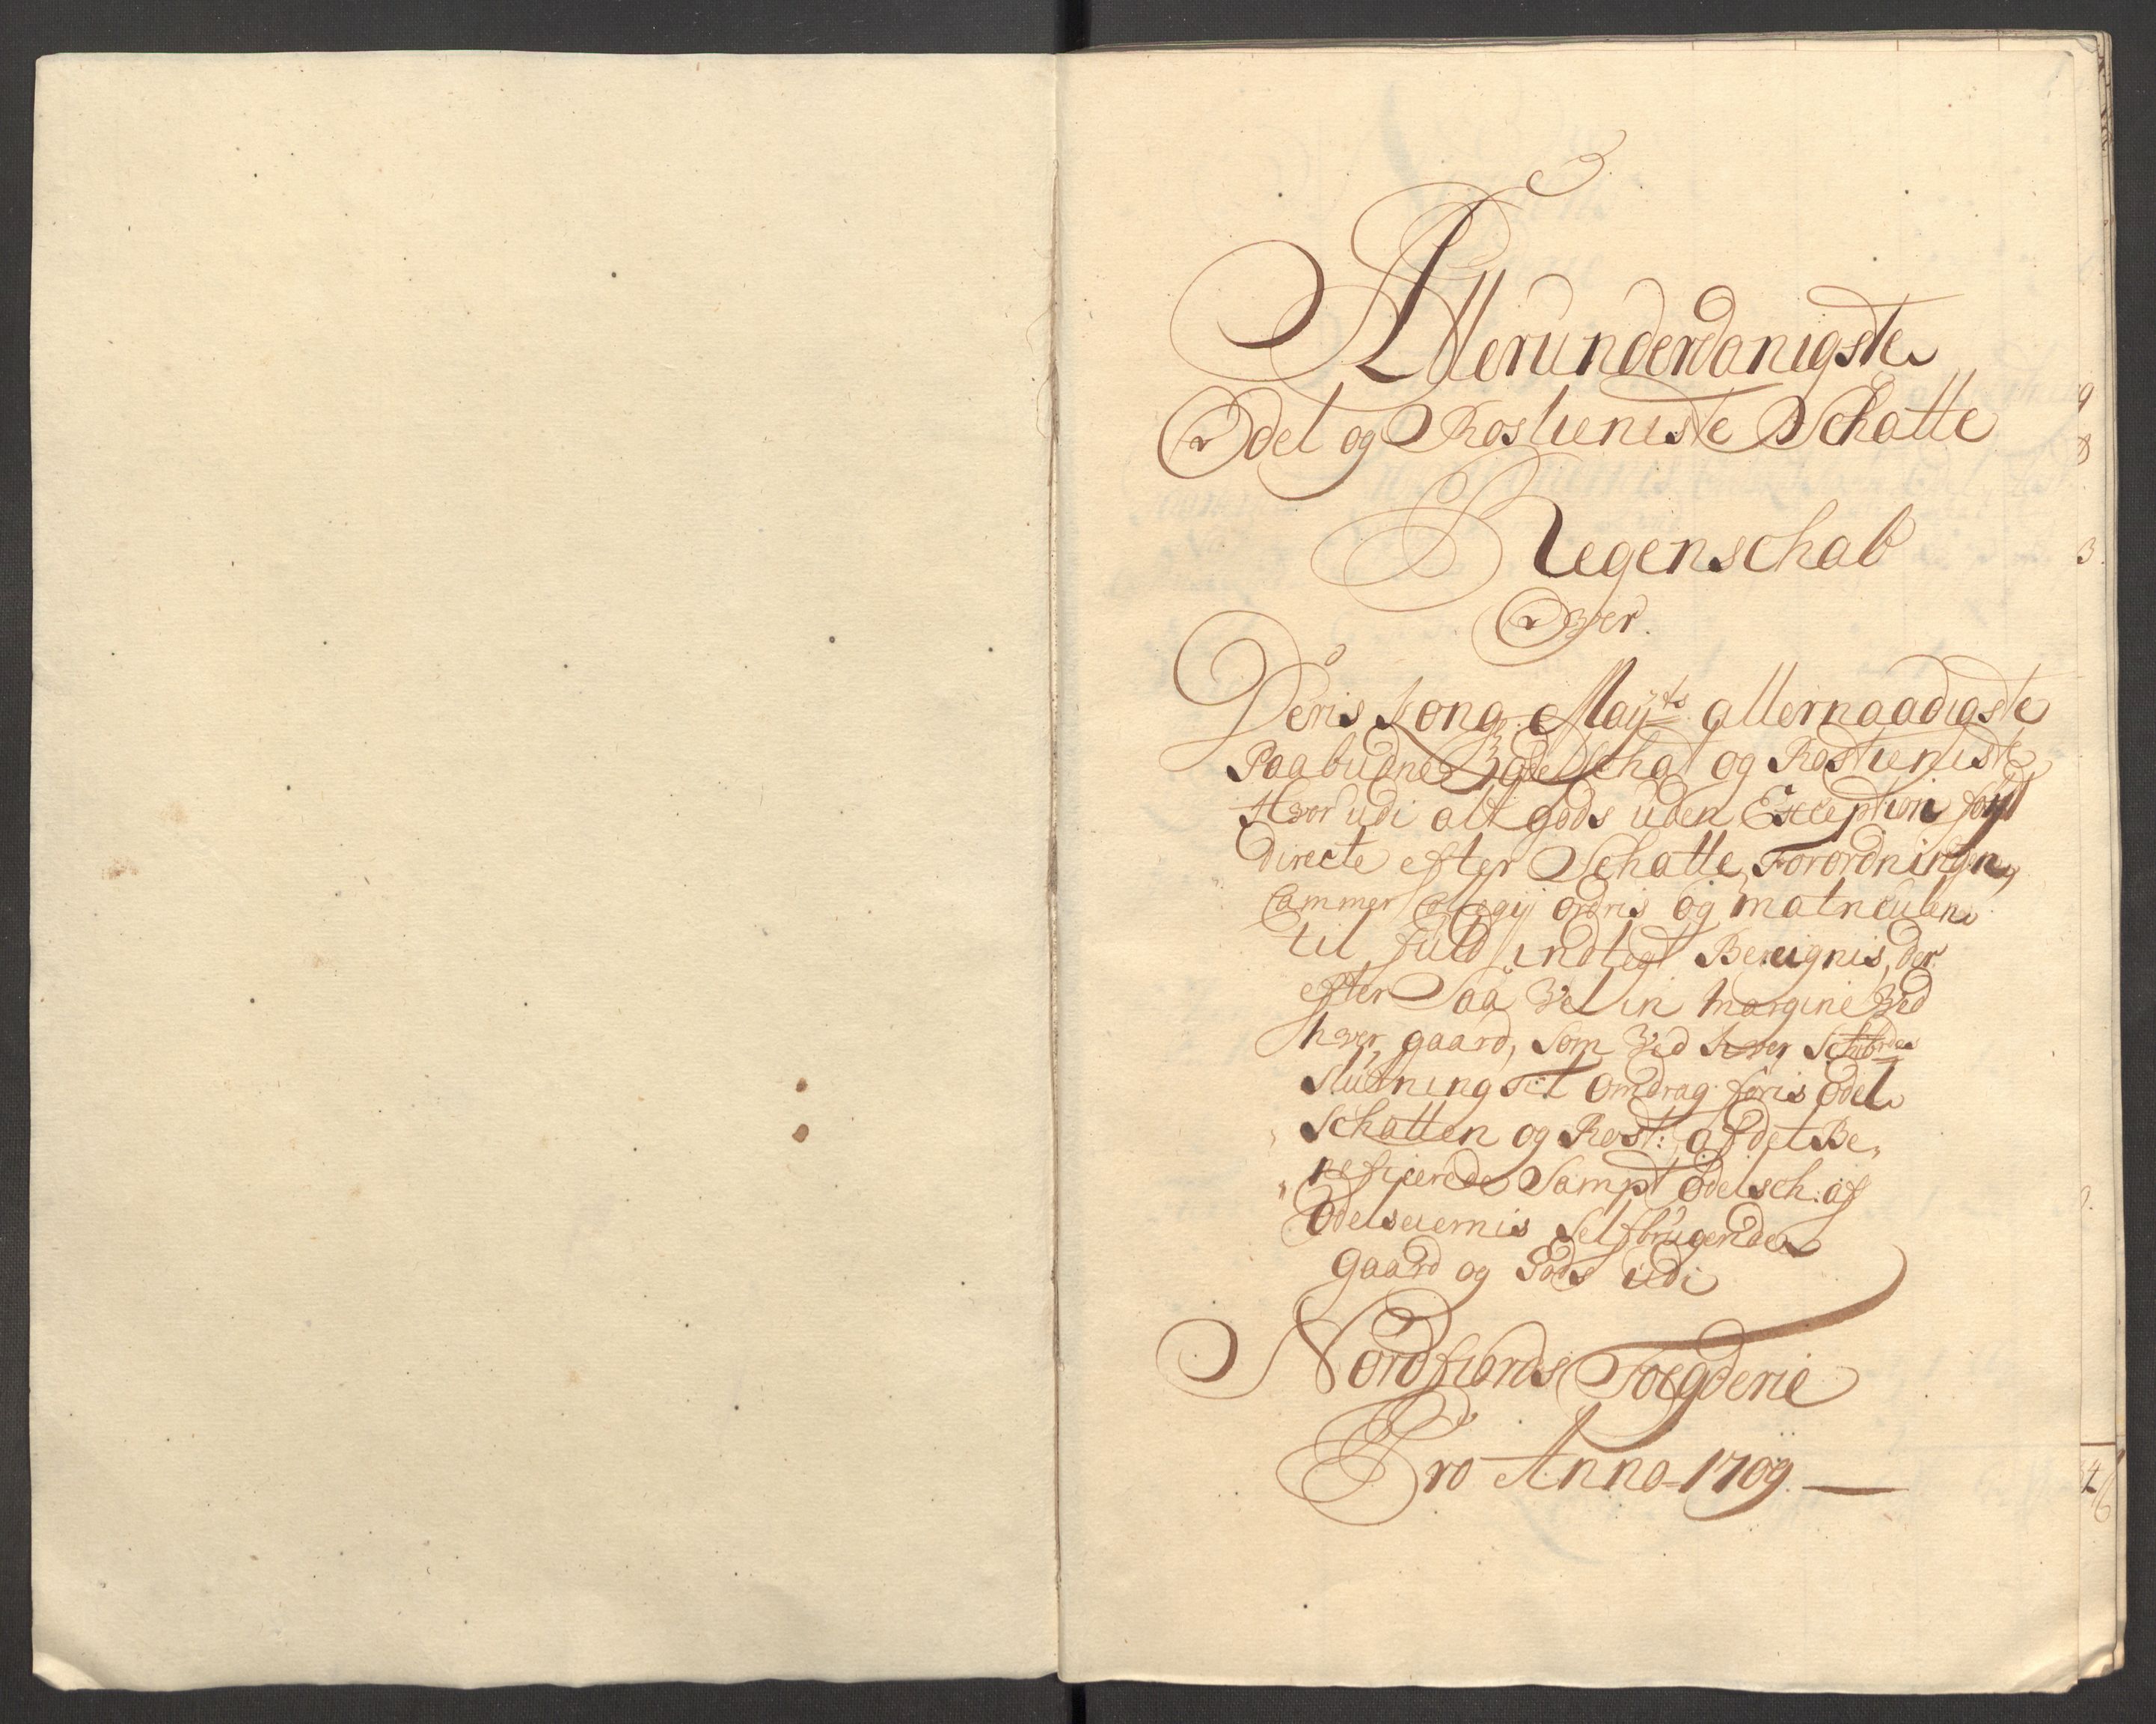 Allerunderdanigste
Odel og Rostieniste Schatte
Regenschab
Over
Deris Kong. Maÿts allernaadigste
Paabudne Odel Schat og Rostieniste
Hvor udi alt gods uden Exception
directe efter Schatte Forordningen,
Cammer Collegij ordris og matriculen
til fuld indtegt Bereignis, der
efter Saa Vel in margine Ved
hver gaard, som Ved hver Schibredes
Slutning til Omdrag føris Odel
Schatten og Rost: af det Be,
neficerede Sampt Odelsch: af
Odelseiernis Selfbrugende
gaard og Gods udi
Nordfiords Foegderie
Pro Anno 1709.